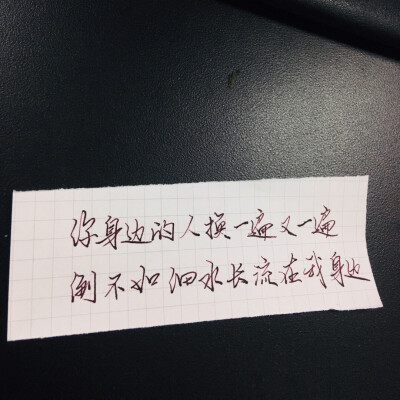 你身边的人换一遍又一遍
倒不如细水长流在我身边